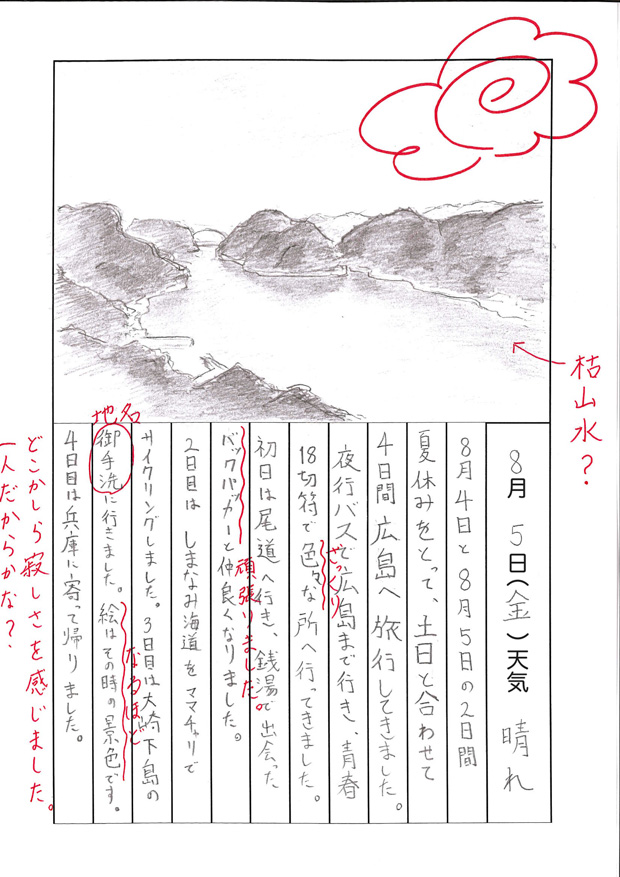 枯山水？
8月5日(金)天気 晴れ
8月4日と8月5日の2日間
夏休みをとって、土日と合わせて
4日間広島へ旅行してきました。
夜行バスで広島まで行き、青春
ざっくり
18切符で色々な所へ行ってきました。
初日は尾道へ行き、銭湯で出会った
頑張りました。
バックパッカーと仲良くなりました。
2日目は しまなみ海道を ママチャリで
サイクリングしました。3日目は大崎下島の
なるほど
地名
御手洗に行きました。絵はその時の景色です。
4日目は兵庫に寄って帰りました。
どこかしら寂しさを感じました。
一人だからかな？